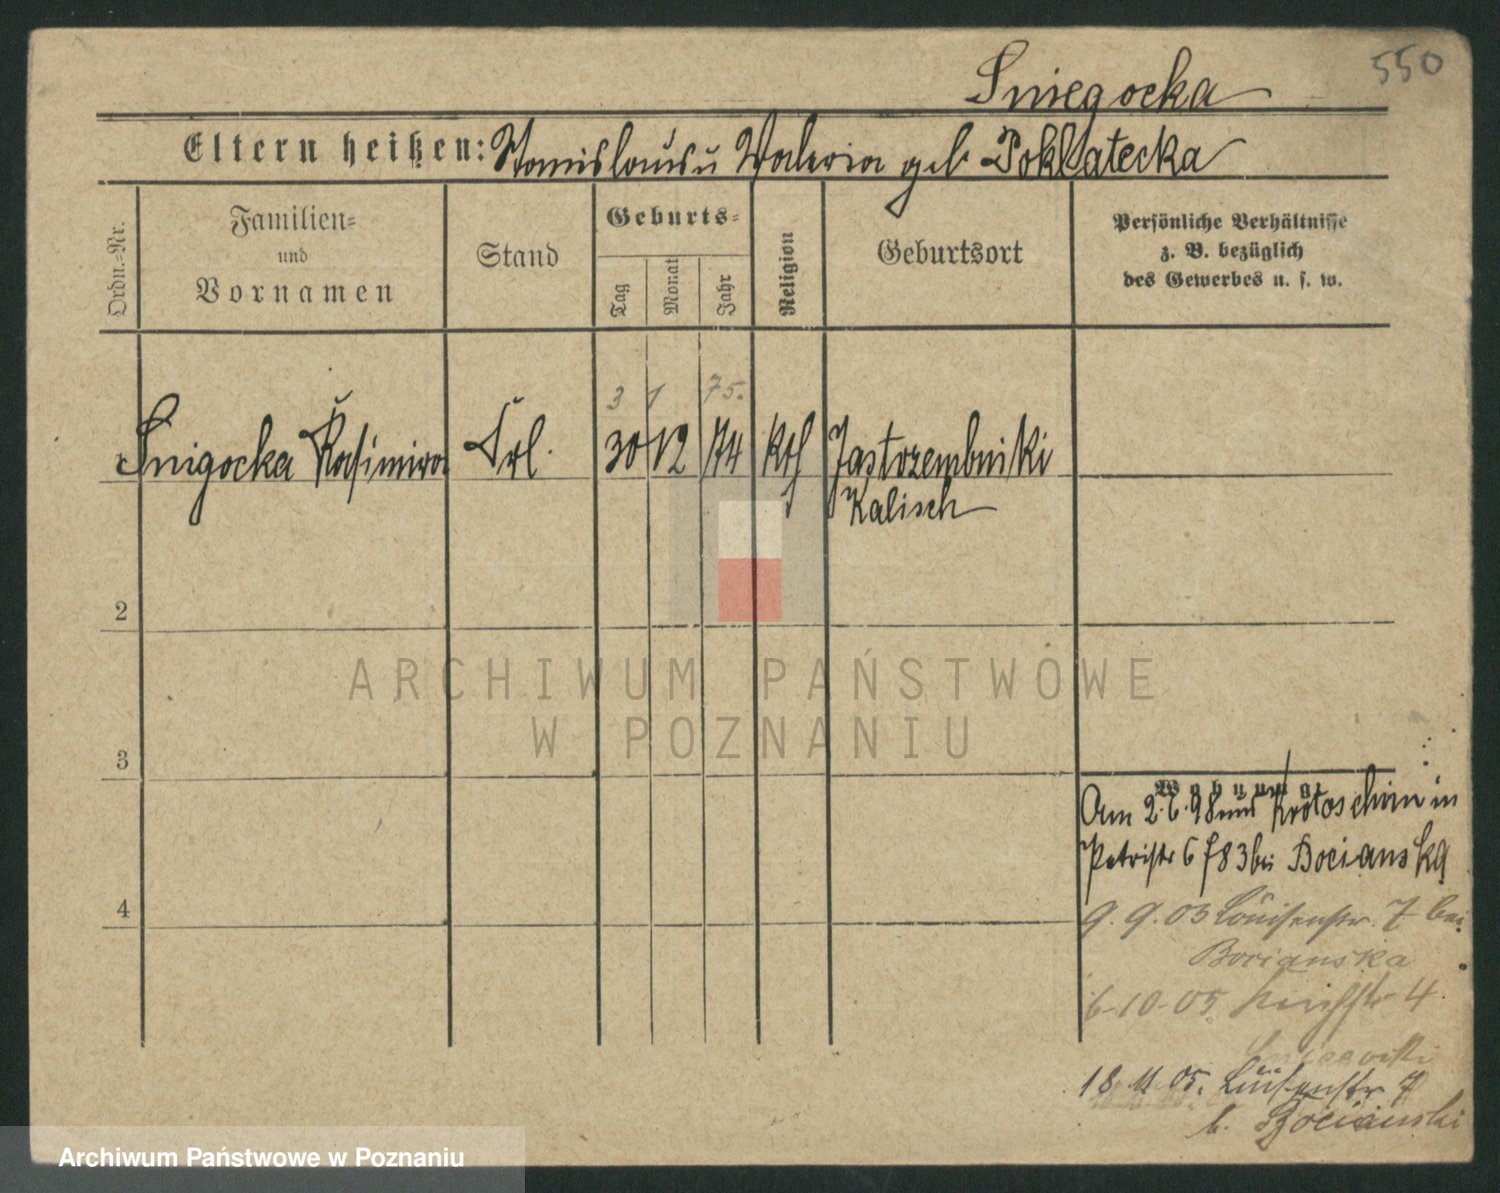 550
Sniegocka
Eltern heißen: Stanislaus u Valeria geb Pokłatecka
Ordn.-Nr.
Familien-
und
Vornamen
Stand
Geburts-
Tag
Monat
Jahr
Religion
Geburtsort
Persönliche Verhältnisse
z. B. bezüglich
des Gewerbes u. s. w.
3 1 75.
Snigocka Kasimira Frl. 30 12 74 kth Jastrzembniki
Kalisch
2
ARCHIWUM PAŃSTWOWE
W POZNANIU
3
Wohnung
Am 2.6.98 aus Krotoschin in
Petristr 6 f83 bei Bocianska
9. 9. 03 Louisenstr. 7 bei
Bocianska
4
6-10-05 4
18 11 05. Louisenstr 7
b. Bocianski
Archiwum Państwowe w Poznaniu